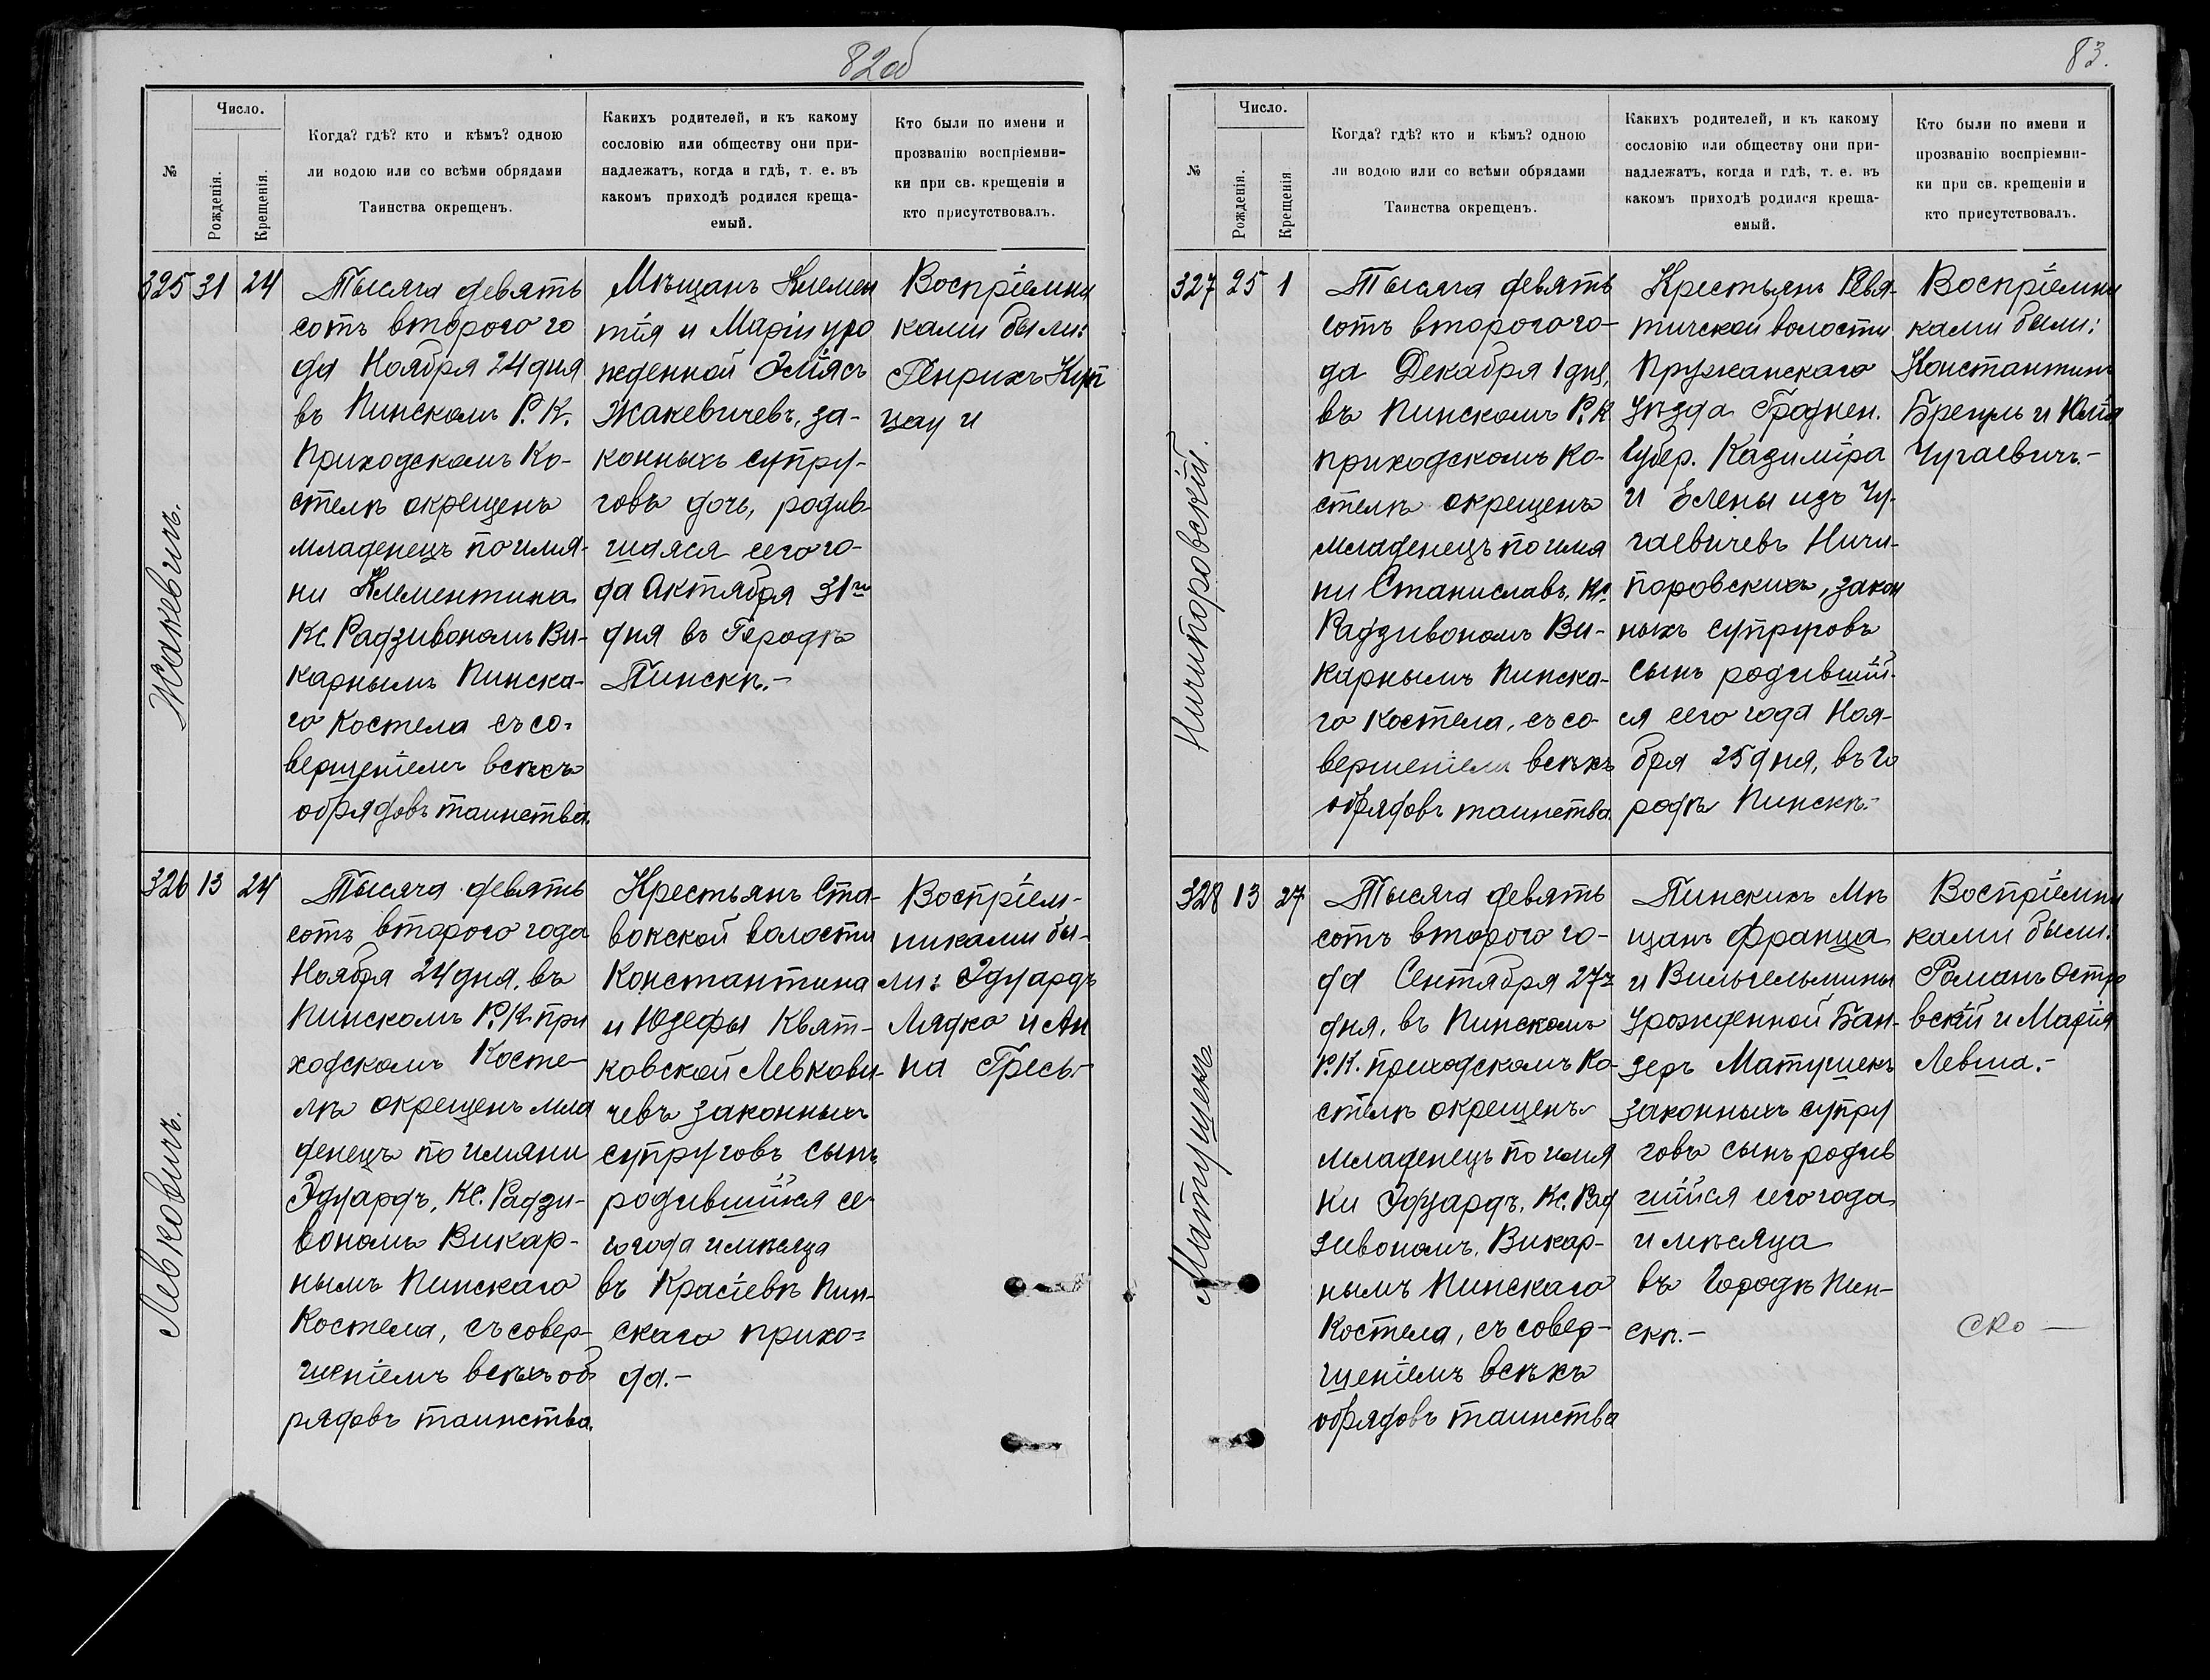 82об
№
Число.
Рожденія.
Крещенія.
Когда? гдѣ? кто и кѣмъ? одною
ли водою или со всѣми обрядами
Таинства окрещенъ.
Какихъ родителей, и къ какому
сословію или обществу они при-
надлежатъ, когда и гдѣ, т. е. въ
какомъ приходѣ родился креща-
емый.
Кто были по имени и
прозванію воспріемни-
ки при св. крещеніи и
кто присутствовалъ.
325 31 24
Жакевичъ.
Тысяча девять
сотъ второго го
да Ноября 24 дня
въ Пинскомъ Р. К.
Приходскомъ Ко-
стелѣ окрещенъ
младенецъ по имя-
ни Клементина
Кс. Радзивономъ Ви-
карнымъ Пинска-
го Костела съ со-
вершеніемъ всѣхъ
обрядовъ таинства.
Мѣщанъ Клемен
тія и Маріи уро
жденной Эліясъ
Жакевичевъ, за-
конныхъ супру-
говъ дочь, родив
шаяся сего го-
да Октября 31го
дня въ Городѣ
Пинскѣ.-
Воспріемни
ками были:
Генрихъ Куп
цау и
326 13 24
Левковичъ.
Тысяча девять
сотъ второго года
Ноября 24 дня, въ
Пинскомъ Р. К. при
ходскомъ Косте-
лѣ окрещенъ мла
денецъ по имяни
Эдуардъ, Кс. Радзи-
вономъ Викар-
нымъ Пинскаго
Костела, съ совер-
шеніемъ всѣхъ об
рядовъ таинства.
Крестьянъ Ста-
вокской волости
Константина
и Юзефы Квят-
ковской Левкови-
чевъ законныхъ
супруговъ сынъ
родившійся се
го года и мѣсяца
въ Красіевѣ Пин-
скаго прихо=
да.-
Воспріем-
никами бы-
ли: Эдуардъ
Лядко и Ан
на Гресь-
83.
№
Число.
Рожденія.
Крещенія
Когда? гдѣ? кто и кѣмъ? одною
ли водою или со всѣми обрядами
Таинства окрещенъ.
Какихъ родителей, и къ какому
сословію или обществу они при-
надлежатъ, когда и гдѣ, т. е. въ
какомъ приходѣ родился креща-
емый.
Кто были по имени и
прозванію воспріемни-
ки при св. крещеніи и
кто присутствовалъ.
327 25 1
Ничипоровскій.
Тысяча девять
сотъ второго го-
да Декабря 1 дня,
въ Пинскомъ Р. К
приходскомъ Ко-
стелѣ окрещенъ
младенецъ по имя
ни Станиславъ, Кс.
Радзивономъ Ви-
карнымъ Пинска-
го Костела, съ со-
вершеніемъ всѣхъ
обрядовъ таинства.
Крестьянъ Ревя-
тичской волости
Пружанскаго
уѣзда Гроднен.
Губер. Казиміра
и Елены изъ Чу-
гаевичевъ Ничи-
поровскихъ, закон
ныхъ супруговъ
сынъ родившій-
ся сего года Ноя-
бря 25 дня, въ Го
родѣ Пинскѣ.-
Воспріемни
ками были:
Константинъ
Брегль и Юлія
Чугаевичъ.-
328 13 27
Матушекъ
Тысяча девять
сотъ второго го-
да Сентября 27г
дня, въ Пинскомъ
Р. К. приходскомъ Ко-
стелѣ окрещенъ
младенецъ по имя
ни Эдуардъ, Кс. Рад
зивономъ, Викар-
нымъ Пинскаго
Костела, съ совер-
шеніемъ всѣхъ
обрядовъ таинства
Пинскихъ Мѣ
щанъ Франца
и Вильгельмины
Урожденной Бан-
зеръ Матушекъ
законныхъ супру
говъ сынъ родив
шійся сего года
и мѣсяца
въ Городѣ Пин-
скѣ.-
Воспріемни
ками были:
Романъ Остро
вскій и Марія
Левша.-
ско —